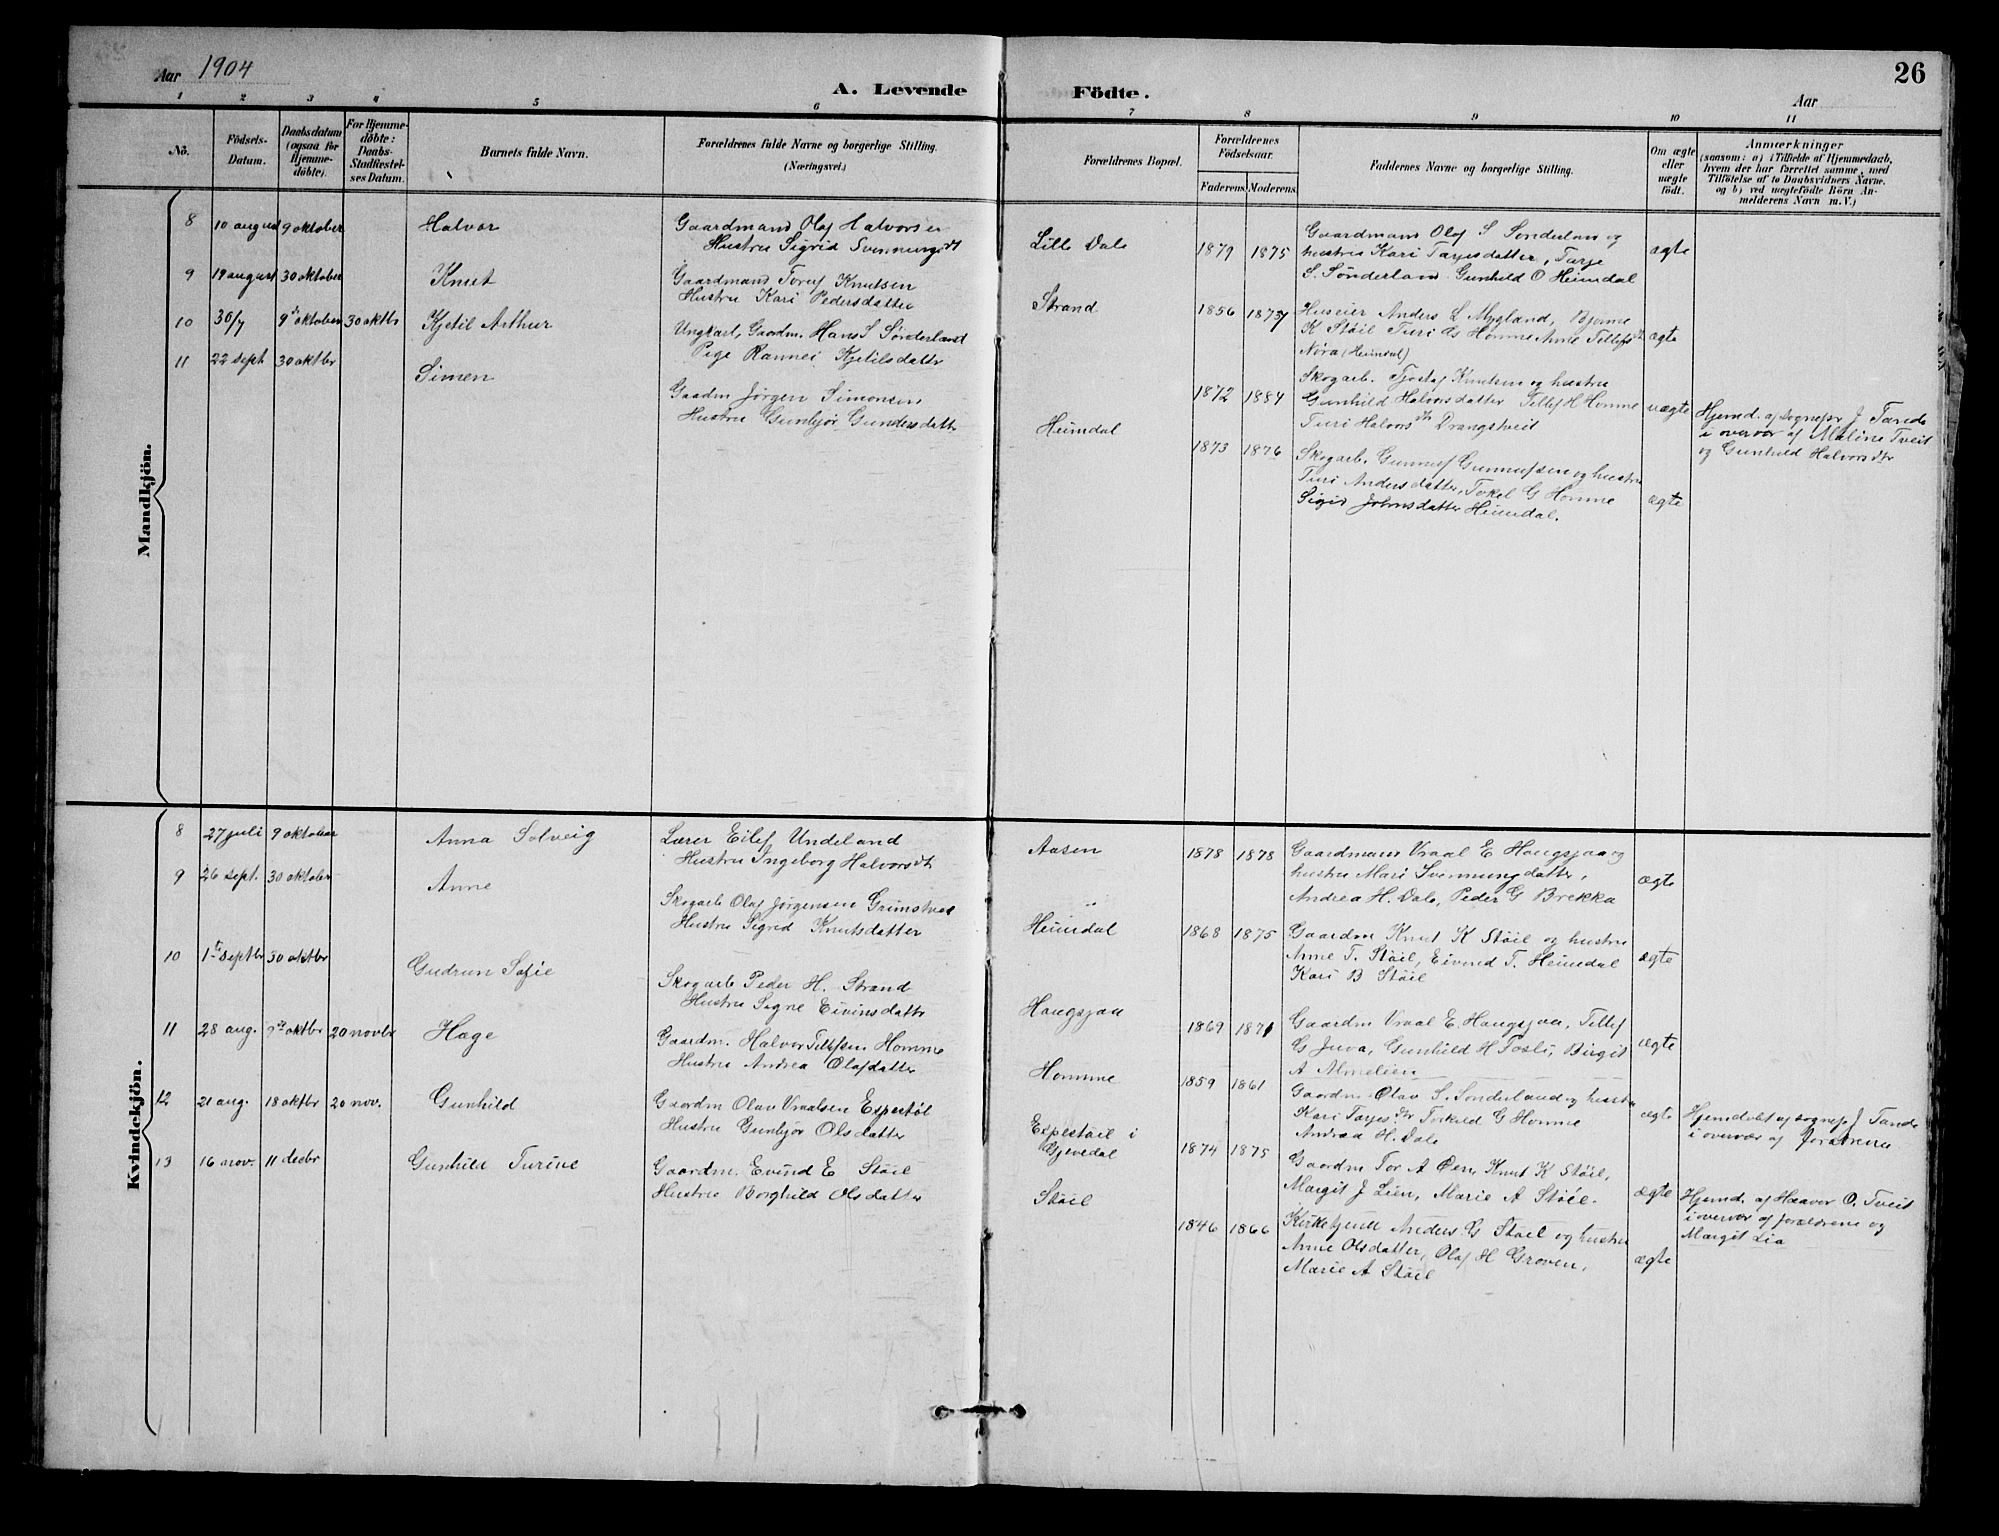 Aar 1904
A. Levende Födte.
Aar
26
1 2 3 4 5 6 7 8 9 10 11
No.
Födsels-Datum.
Daabsdatum (ogsaa for Hjemme-döbte).
For Hjemme-döbte: Daabs-Stadfæstel-ses Datum.
Barnets fulde Navn.
Forældrenes fulde Navne og borgerlige Stilling.
(Næringsvei.)
Forældrenes Bopæl.
Forældrenes Födselsaar.
Faderens. Moderens.
Faddernes Navne og borgerlige Stilling.
Om ægte eller uægte födt.
Anmærkninger
(saasom: a) i Tilfælde af Hjemmedaab,
hvem der har forrettet samme, med
Tilföielse af to Daabsvidners Navne.
og b) ved uægtefödte Börn An-
melderens Navn m. V.)
Mandkjön.
8 10 august 9 oktober Halvor
Gaardmand Olaf Halvorsen
Hustru Sigrid Svenningsdt
Lille Dale 1879 1875
Gaardmand Olaf S Sönderland og
hustru Kari Tarjesdatter, Tarje
S. Sønderland. Gunhild O Heimdal
ægte
9 19 august 30 oktober Knut
Gaardmand Torjus Knutsen
Hustru Kari Pedersdatter
Strand 1856 1873
Huseier Anders L Mygland, Bjorne
K Støil Turi Gs Homme Anne Tellefsdtr
Nöra (Heimdal)
ægte
10 30/7 9de oktober 30 oktbr Kjetil Arthur
Ungkarl, Gaardm. Hans S Sønderland
Pige Rannei Kjetilsdatter
1872 1884
Skogarb. Tjostof Knutsen og hustru
Gunhild Halvorsdatter Tellef H Homme
Turi Halvorsdtr Drangstveit
uægte
Hjemd. af sognepr J Tande
i overvær af Maline Tveit
og Gunhild Halvorsdtr
11 22 sept 30 oktbr Simen
Gaardm Jørgen Simonsen
Hustru Gunbjør Gundersdatter
Heimdal 1873 1876
Skogarb. Gunnuf Gunnufsen og hustru
Turi Andersdatter, Tokel G Homme
Sigrid Johnsdatter Heimdal.
ægte
Kvindekjön.
8 27 juli 9 oktober Anna Solveig
Lærer Eilef Undeland
Hustru Ingeborg Halvorsdt
Aasen 1878 1878
Gaardmann Vraal E Haugsjaa og
hustru Mari Svenningdatter,
Andrea H. Dale, Peder G Brekka
ægte
9 26 sept. 30 oktober Anne
Skogarb Olaf Jørgensen Grimstved
Hustru Sigrid Knutsdatter
Heimdal 1868 1875
Gaardm Knut K Støil og hustru
Anne T. Støil, Eivind T. Heimdal
Kari B Støil
ægte
10 1te septbr 30 oktbr Gudrun Sofie
Skogarb Peder H. Strand
Hustru Signe Eivinsdatter
Haugsjaa 1869 1871
Gaardm Vraal E. Haugsjaa, Tellef
G Juva, Gunhild H Fosli, Birgit
A Almelien
ægte
11 28 aug. 9de oktbr 20 novbr Hage
Gaardm. Halvor Tellefsen Homme
Hustru Andrea Olafdatter
Homme 1859 1861
Gaardm Olav S. Sønderland og hustru
Kari Tarjesdtr Torkild G Homme
Andrea H. Dale
ægte
Hjemdøbt af sognep J Tande
i overvær af foraldrene
12 21 aug. 18 oktbr 20 nov. Gunhild
Gaardm Olav Vraalsen Espestøl
Hustru Gunbjør Olsdatter
Espestøil i
Gjevedal
1874 1875
Gaardm Tor A Øen, Knut K Støil,
Margit J Lien, Marie A Støil.
ægte
Hjemd. af Haavor O. Tveit
i overvær af foraldrene og
Margit Lia
13 16 nov. 11 decbr Gunhild Turine
Gaardm. Evind E Støil
Hustru Borghild Olsdatter
Støil 1846 1866
Kirketjener Anders G Støil og hustru
Anne Olsdatter, Olaf H Groven,
Marie A Støil
ægte